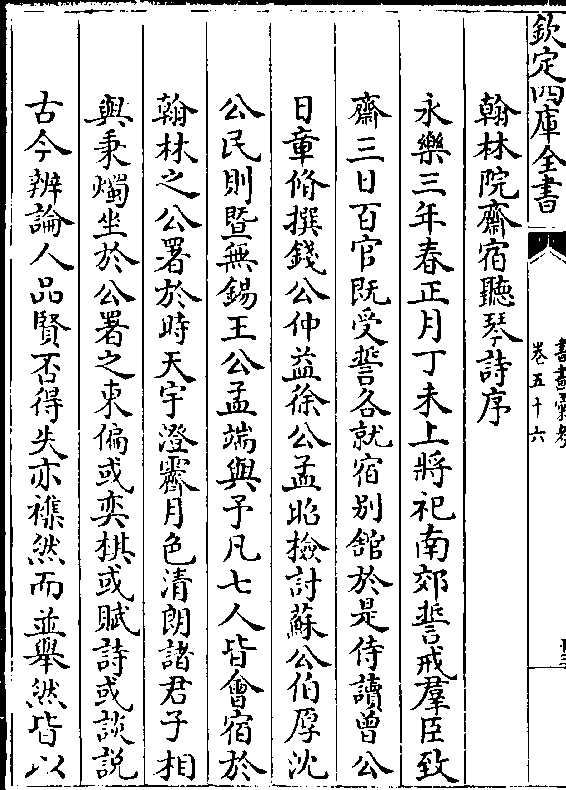 欽定四庫全書
卷五十六
翰林院齋宿聽琴詩序
永樂三年春正月丁未上將祀南郊誓戒羣臣致
齋三日百官既受誓各就宿别舘於是侍讀曾公
日章脩撰錢公仲益徐公孟昭檢討蘇公伯厚沈
公民則暨無錫王公孟端與予凡七人皆㑹宿於
翰林之公署於時天宇澄霽月色清朗諸君子相
與秉燭坐於公署之東偏或奕棋或賦詩或談説
古今辨論人品賢否得失亦襍然而並舉然皆以